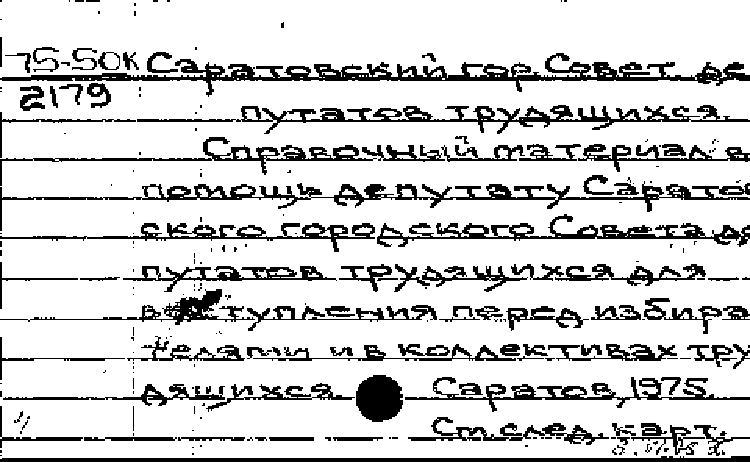 75-50К Саратовский гор. Совет де
2179 путатов трудящихся.
Справочный материал в
помощь депутату Саратов
ского городского Совета де
путатов трудящихся для
выступления перед избира
телями и в коллективах тру
дящихся. Саратов, 1975.
См. след. карт.